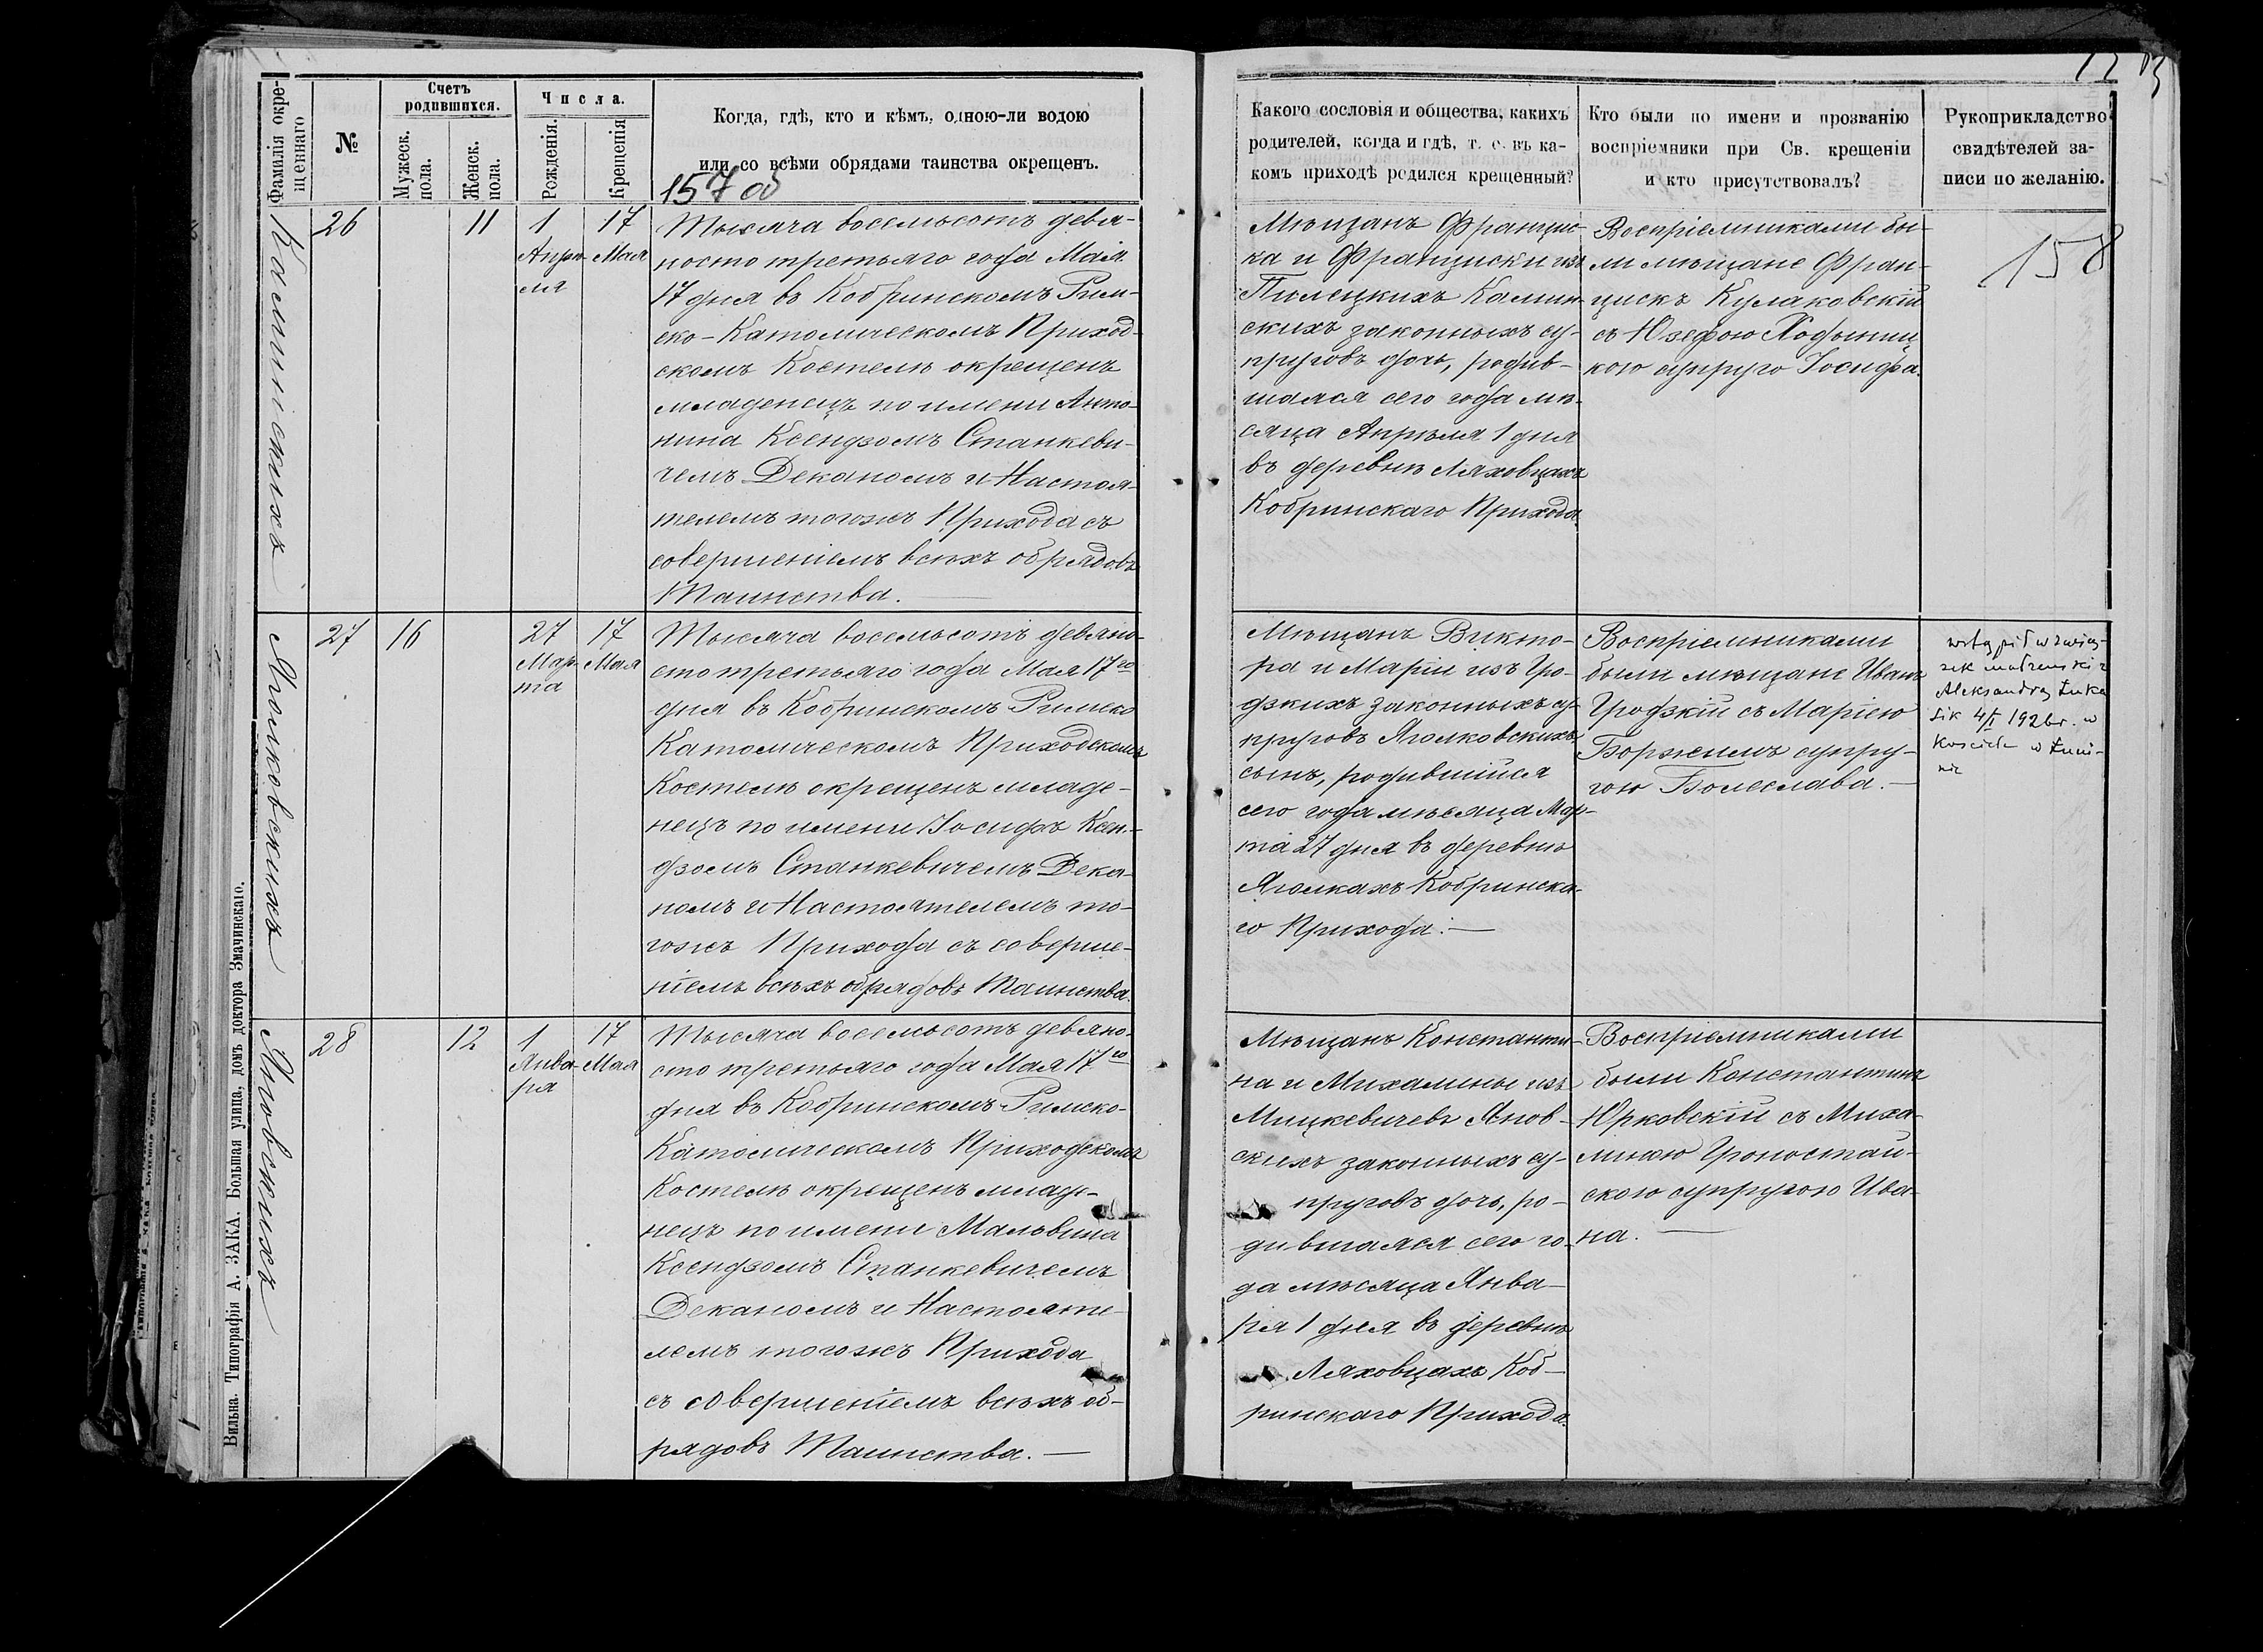 Фамилія окре-
щеннаго
№
Счетъ
родившихся.
Мужеск.
пола.
Женск.
пола.
Числа.
Рожденія.
Крещенія
Когда, гдѣ, кто и кѣмъ, одною-ли водою
или со всѣми обрядами таинства окрещенъ.
157 об
Калинскихъ
26
11
1
Апрѣ-
ля
17
Мая
Тысяча восемьсотъ девя-
носто третьяго года Мая
17 дня въ Кобринскомъ Рим-
ско-Католическомъ Приход-
скомъ Костелѣ окрещенъ
младенецъ по имени Анто-
нина Ксендзомъ Станкеви-
чемъ Деканомъ и Настоя-
телемъ тогожъ Прихода съ
совершеніемъ всѣхъ обрядовъ
Таинства.
Яголковскихъ
27
16
27
Мар-
та
17
Мая
Тысяча восемьсотъ девяно-
сто третьяго года Мая 17го
дня въ Кобринскомъ Римско
Католическомъ Приходскомъ
Костелѣ окрещенъ младе-
нецъ по имени Іосифъ Ксен-
дзомъ Станкевичемъ Дека-
номъ и Настоятелемъ то-
гожъ Прихода съ соверше-
ніемъ всѣхъ обрядовъ Таинства.
Яновскихъ
28
12
1
Янва-
ря
17
Мая
Тысяча восемьсотъ девяно-
сто третьяго года Мая 17го
дня въ Кобринскомъ Римско-
Католическомъ Приходскомъ
Костелѣ окрещенъ младе-
нецъ по имени Мальвина
Ксендзомъ Станкевичемъ
Деканомъ и Настояте-
лемъ тогожъ Прихода
съ совершеніемъ всѣхъ об-
рядовъ Таинства.
Вильна. Типографія А. ЗАКА. Большая улица, домъ доктора Змачинскаго.
Какого сословія и общества, какихъ
родителей, когда и гдѣ, т. е. въ ка-
комъ приходѣ родился крещенный?
Кто были по имени и прозванію
воспріемники при Св. крещеніи
и кто присутствовалъ?
Рукоприкладство
свидѣтелей за-
писи по желанію.
158
Мѣщанъ Францис-
ка и Франциски изъ
Пилецкихъ Калин-
скихъ законныхъ су-
пруговъ дочь, родив-
шаяся сего года мѣ-
сяца Апрѣля 1 дня
въ деревнѣ Ляховцахъ
Кобринскаго Прихода
Воспріемниками бы-
ли мѣщане Фран-
цискъ Кулаковскій
съ Юзефою Ходыниц
кою супруго Іосифа.
Мѣщанъ Викто-
ра и Маріи изъ Гро-
дзкихъ законныхъ су-
пруговъ Яголковскихъ
сынъ, родившійся
сего года мѣсяца Мар-
та 27 дня въ деревнѣ
Яголкахъ Кобринска-
го Прихода.
Воспріемниками
были мѣщане Иванъ
Гродзкій съ Маріею
Боржемъ супру-
гою Болеслава.
wstąpił w związ-
zek małżeński z
Aleksandrą Łuka
sik 4/I 1926 r. w
Kościele w Łuni-
Мѣщанъ Константи-
на и Михалины изъ
Мицкевичевъ Янов-
скихъ законныхъ су-
пруговъ дочь, ро-
дившаяся сего го-
да мѣсяца Янва-
ря 1 дня въ деревнѣ
Ляховцахъ Коб-
ринскаго Прихода.
Воспріемниками
были Константинъ
Юрковскій съ Миха-
линою Гроностай-
скою супругою Ива-
на.